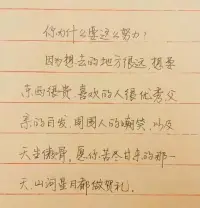 你为什么要这么努力!
因为想去的地方很远,想要
东西很贵,喜欢的人很优秀父
亲的白发,周围人的嘲笑,以及
天生傲骨,愿你苦尽甘来的那一
天,山河星月都做贺礼.